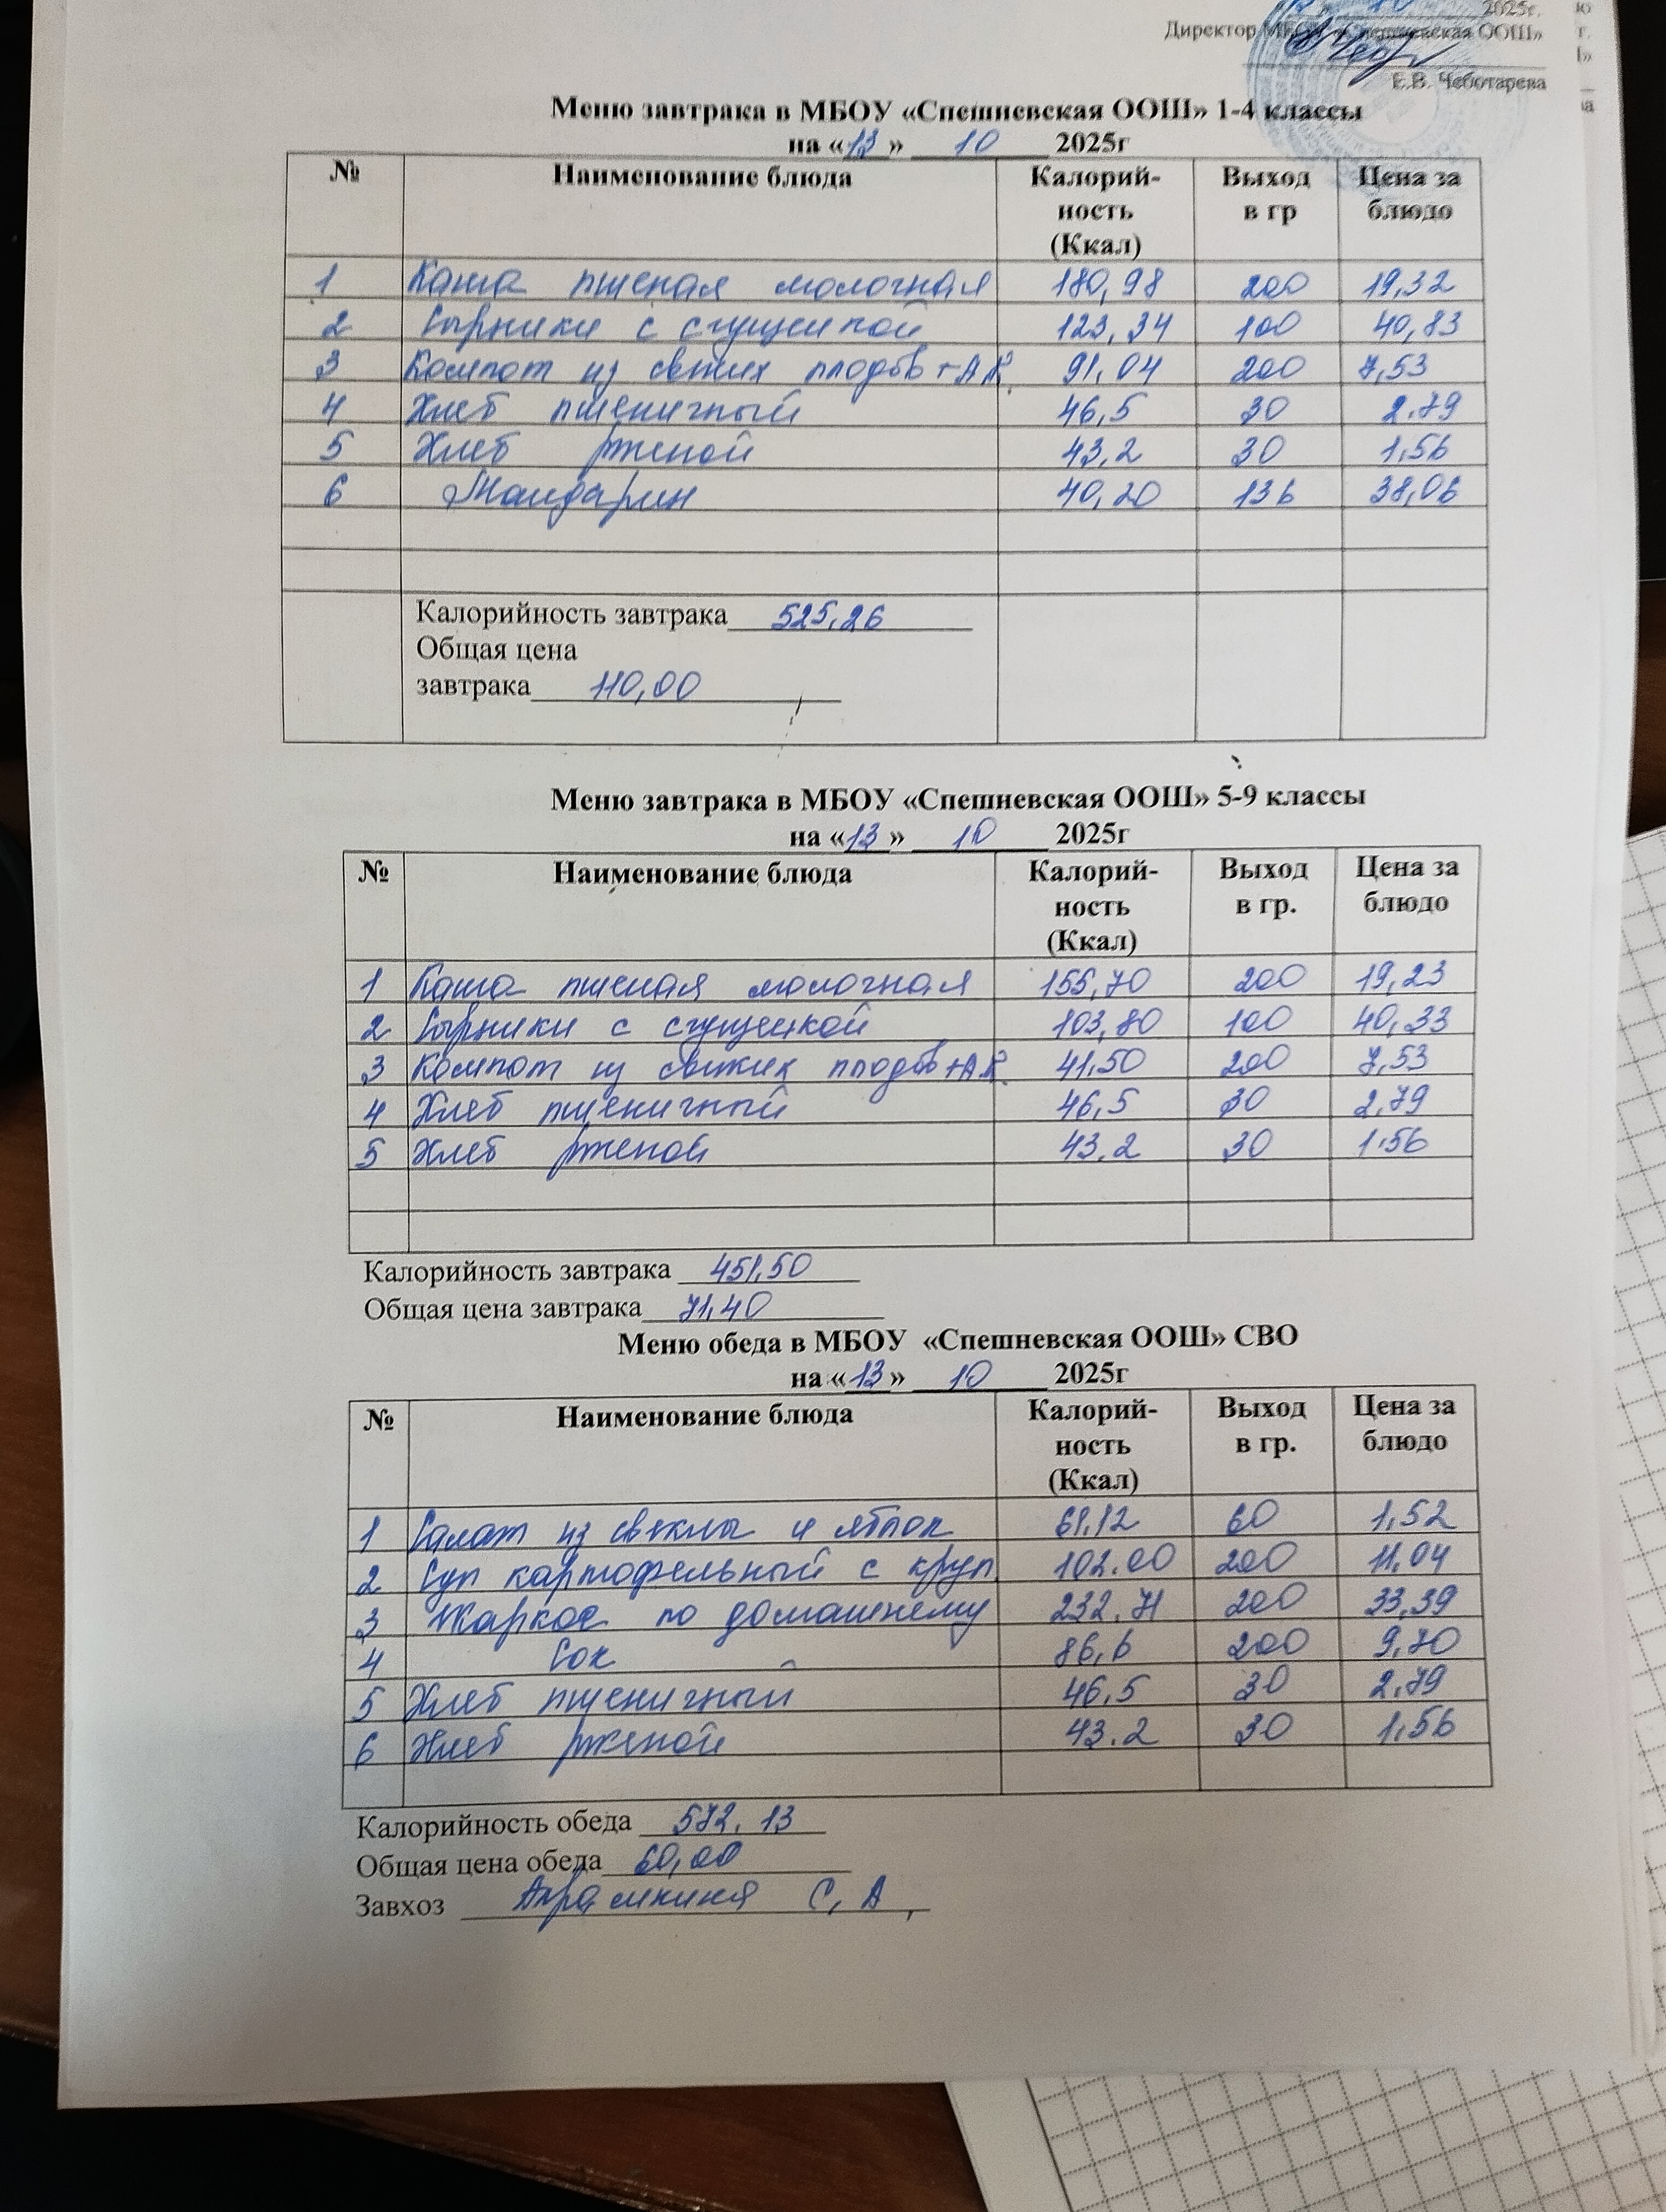 2025г.
Директор МБОУ «Спешневская ООШ»
Е.В. Чеботарева
Меню завтрака в МБОУ «Спешневская ООШ» 1-4 классы
на «13» 10 2025г
№ Наименование блюда Калорий-ность (Ккал) Выход в гр Цена за блюдо
1 Каша пшеная молочная 180,98 200 19,32
2 Сырники с сгущенкой 123,34 100 40,83
3 Компот из свежих плодов+А.К. 91,04 200 7,53
4 Хлеб пшеничный 46,5 30 2.79
5 Хлеб рженой 43,2 30 1,56
6 Мандарин 40,20 136 38,06
Калорийность завтрака 525,26
Общая цена
завтрака 110,00
Меню завтрака в МБОУ «Спешневская ООШ» 5-9 классы
на «13» 10 2025г
№ Наименование блюда Калорий-ность (Ккал) Выход в гр. Цена за блюдо
1 Каша пшеная молочная 155,70 200 19,23
2 Сырники с сгущенкой 103,80 100 40,33
3 Компот из свежих плодов+А.К. 41,50 200 7,53
4 Хлеб пшеничный 46,5 30 2,79
5 Хлеб рженой 43.2 30 1.56
Калорийность завтрака 451,50
Общая цена завтрака 71,40
Меню обеда в МБОУ «Спешневская ООШ» СВО
на «13» 10 2025г
№ Наименование блюда Калорий-ность (Ккал) Выход в гр. Цена за блюдо
1 Салат из свеклы и яблок 61,12 60 1,52
2 Суп картофельный с круп. 102.00 200 11,04
3 Жаркое по домашнему 232,71 200 33,39
4 Сок 86,6 200 9,70
5 Хлеб пшеничный 46,5 30 2,79
6 Хлеб рженой 43.2 30 1,56
Калорийность обеда 572.13
Общая цена обеда 60,00
Завхоз С.А.